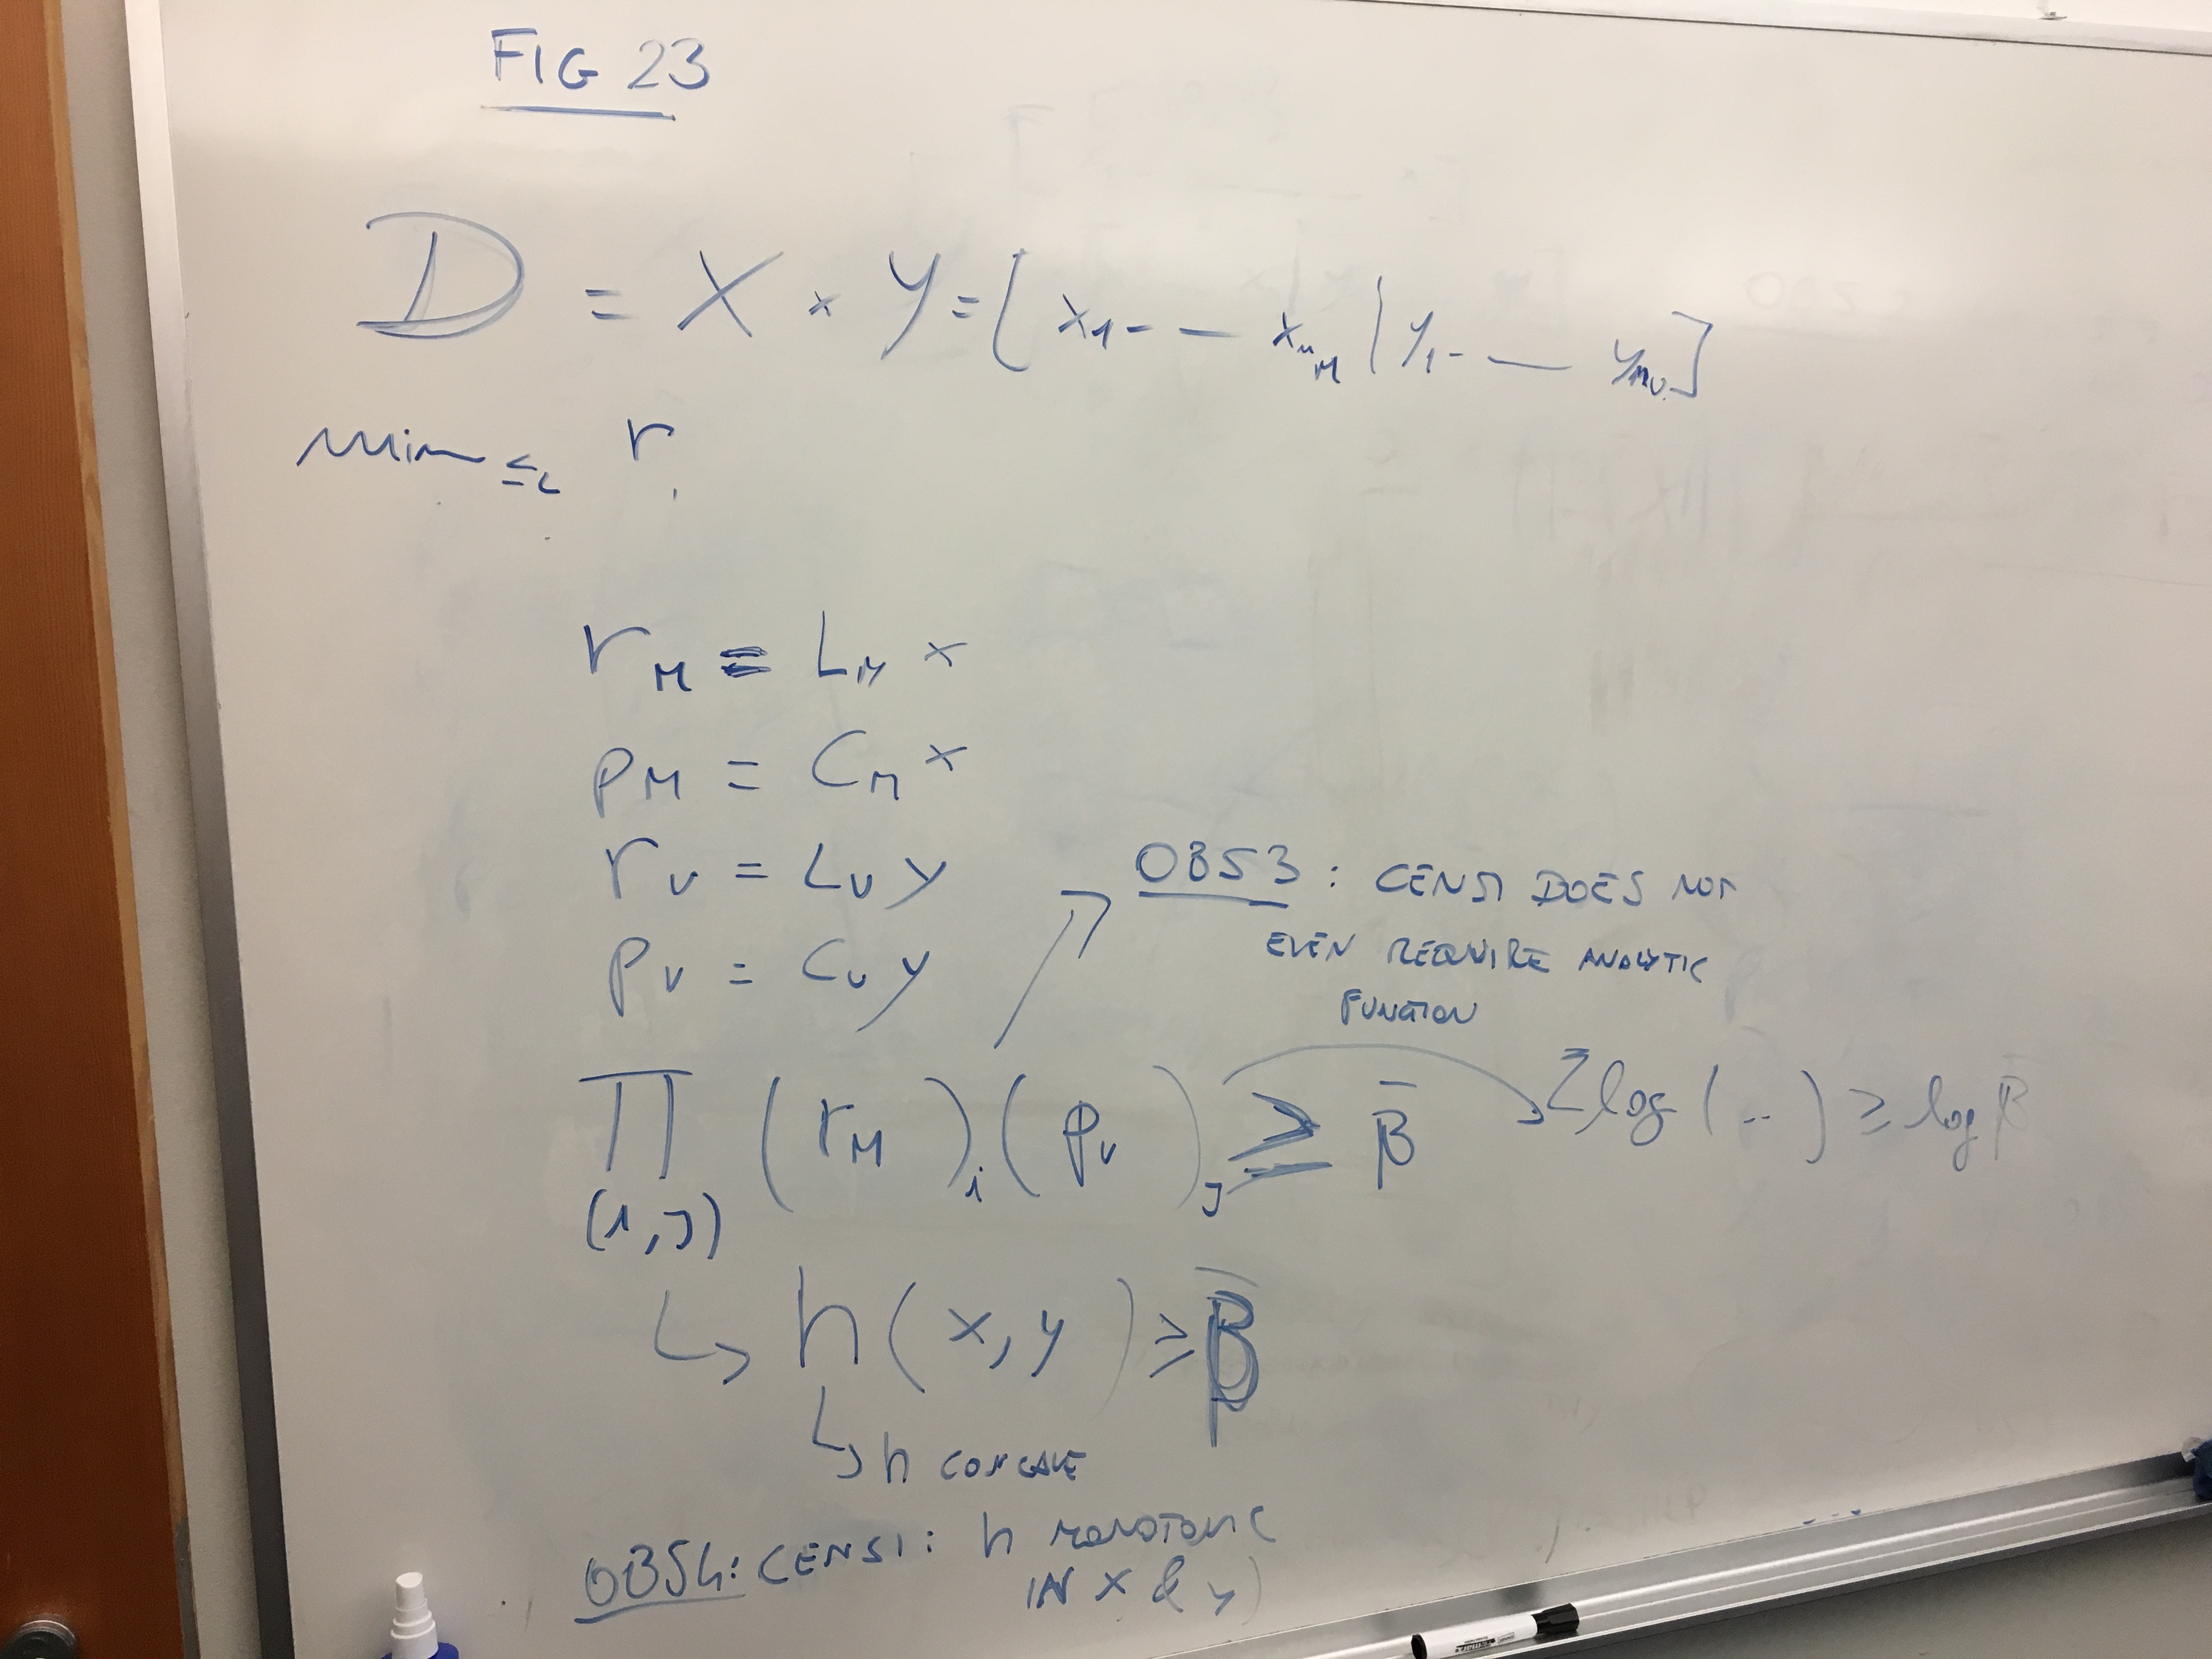 FIG 23
D = X × Y = [ x1 - - x_{n_M} | y1 - — y_{n_V} ]
min ≤_L r
r_M = L_M x
p_M = C_M x
r_V = L_V y
p_V = C_V y
OBS3: CENSI DOES NOT
EVEN REQUIRE ANALYTIC
FUNCTION
∏ (r_M)_i (p_V)_J ≥ β̄
(i,J)
Σ log (..) ≥ log β̄
↳ h(x,y) ≥ β̄
↳ h CONCAVE
OBS4: CENSI: h MONOTONIC
IN X & y)